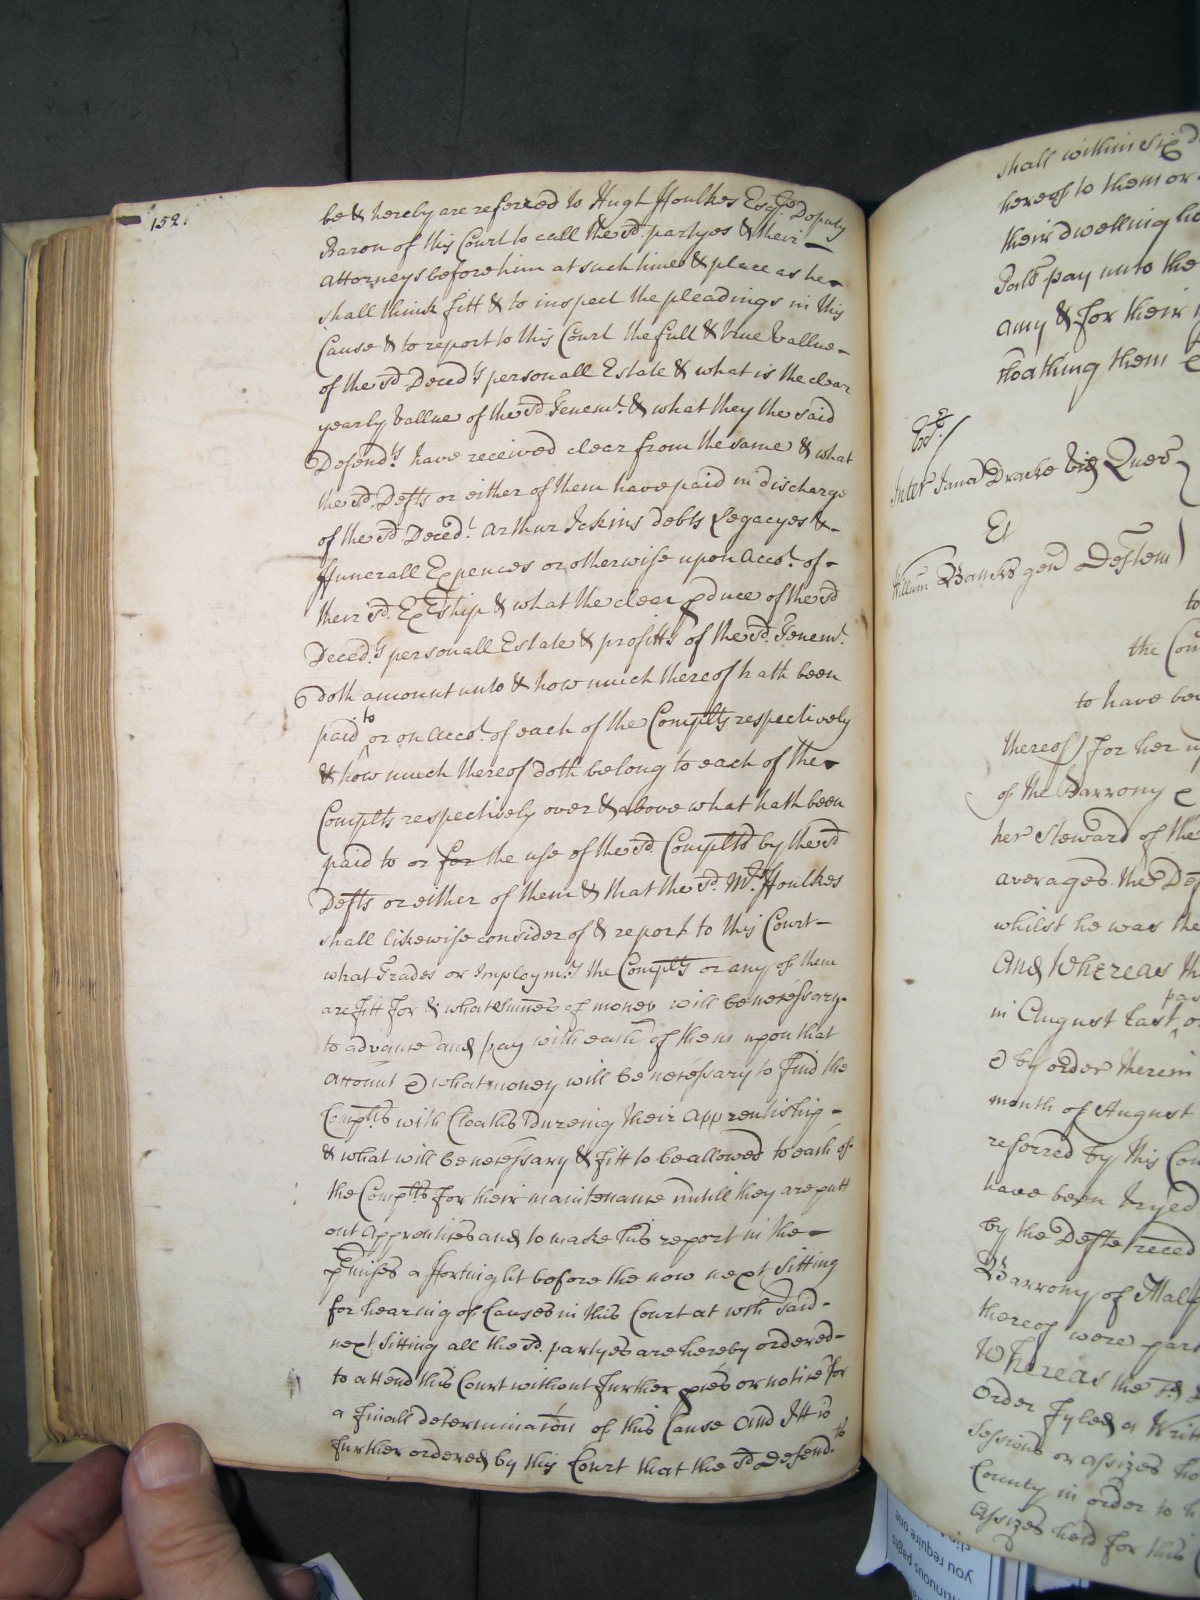 152.
be & hereby are referred to Hugh Ffoulkes Esqr. Deputy
Baron of this Court to call the sd. partyes & their
Attorneys before him at such time & place as he
shall think fitt & to inspect the pleadings in this
Cause & to report to this Court the full & true vallue
of the sd Deced.ts personall Estate & what is the clear
yearly vallue of the sd Tenemt. & what they the said
Defend.ts have received clear from the same & what
the sd. Defts or either of them have paid in discharge
of the sd Deced.t Arthur Ickins debts Legacyes &
ffunerall Expences or otherwise upon Acco.t of
their sd. Exr̃ship & what the clear pduce of the sd
Deced.ts personall Estate & profitts of the sd. Tenemt.
doth amount unto & how much thereof hath been
paid to or on Acco.t of each of the Complts respectively
& how much thereof doth belong to each of the
Complts respectively over & above what hath been
paid to or for the use of the sd. Complts by the sd
Defts or either of them & that the sd. Mr. Ffoulkes
shall likewise consider of & report to this Court
what Trades or Imploym.ts the Complts or any of them
are fitt for & what summes of money will be necessary
to advance and pay with each of them upon that
Account & what money will be necessary to find the
Complts with Cloaths Dureing their Apprentiship
& what will be necessary & fitt to be allowed to each of
the Complts for their maintenance untill they are putt
out Apprentices and to make his report in the
pmises a ffortnight before the now next sitting
for hearing of Causes in this Court at wch said
next sitting all the sd. partyes are hereby ordered
to attend this Court without further pces or notice for
a finall determinac̃on of this Cause And Itt is
further ordered by this Court that the sd Defend.ts
shall within six d
hereof to them or
their dwelling ho
pay unto the
any & for their
Cloathing them
Inter Jana Drake vid Quer
Et
Willum Bancks gen Deftem
to
the Com
to have bee
thereof) for her
of the Barrony
her Steward of the
averages the Def
whilst he was the
And Whereas th
in August last
by order therein
month of August
referred by this Cou
have been tryed
by the Defte reced
Barrony of Malp
thereof were part
Whereas the sd
Order fyled a Writt
Sessions or Assizes ho
County in order to h
Assizes held for this
you require one